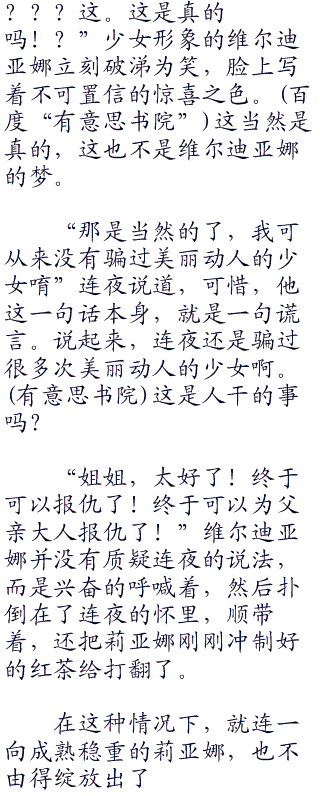 ？？？这。这是真的
吗！？”少女形象的维尔迪
亚娜立刻破涕为笑，脸上写
着不可置信的惊喜之色。(百
度“有意思书院”)这当然是
真的，这也不是维尔迪亚娜
的梦。
“那是当然的了，我可
从来没有骗过美丽动人的少
女唷”连夜说道，可惜，他
这一句话本身，就是一句谎
言。说起来，连夜还是骗过
很多次美丽动人的少女啊。
(有意思书院)这是人干的事
吗？
“姐姐，太好了！终于
可以报仇了！终于可以为父
亲大人报仇了！”维尔迪亚
娜并没有质疑连夜的说法，
而是兴奋的呼喊着，然后扑
倒在了连夜的怀里，顺带
着，还把莉亚娜刚刚冲制好
的红茶给打翻了。
在这种情况下，就连一
向成熟稳重的莉亚娜，也不
由得绽放出了